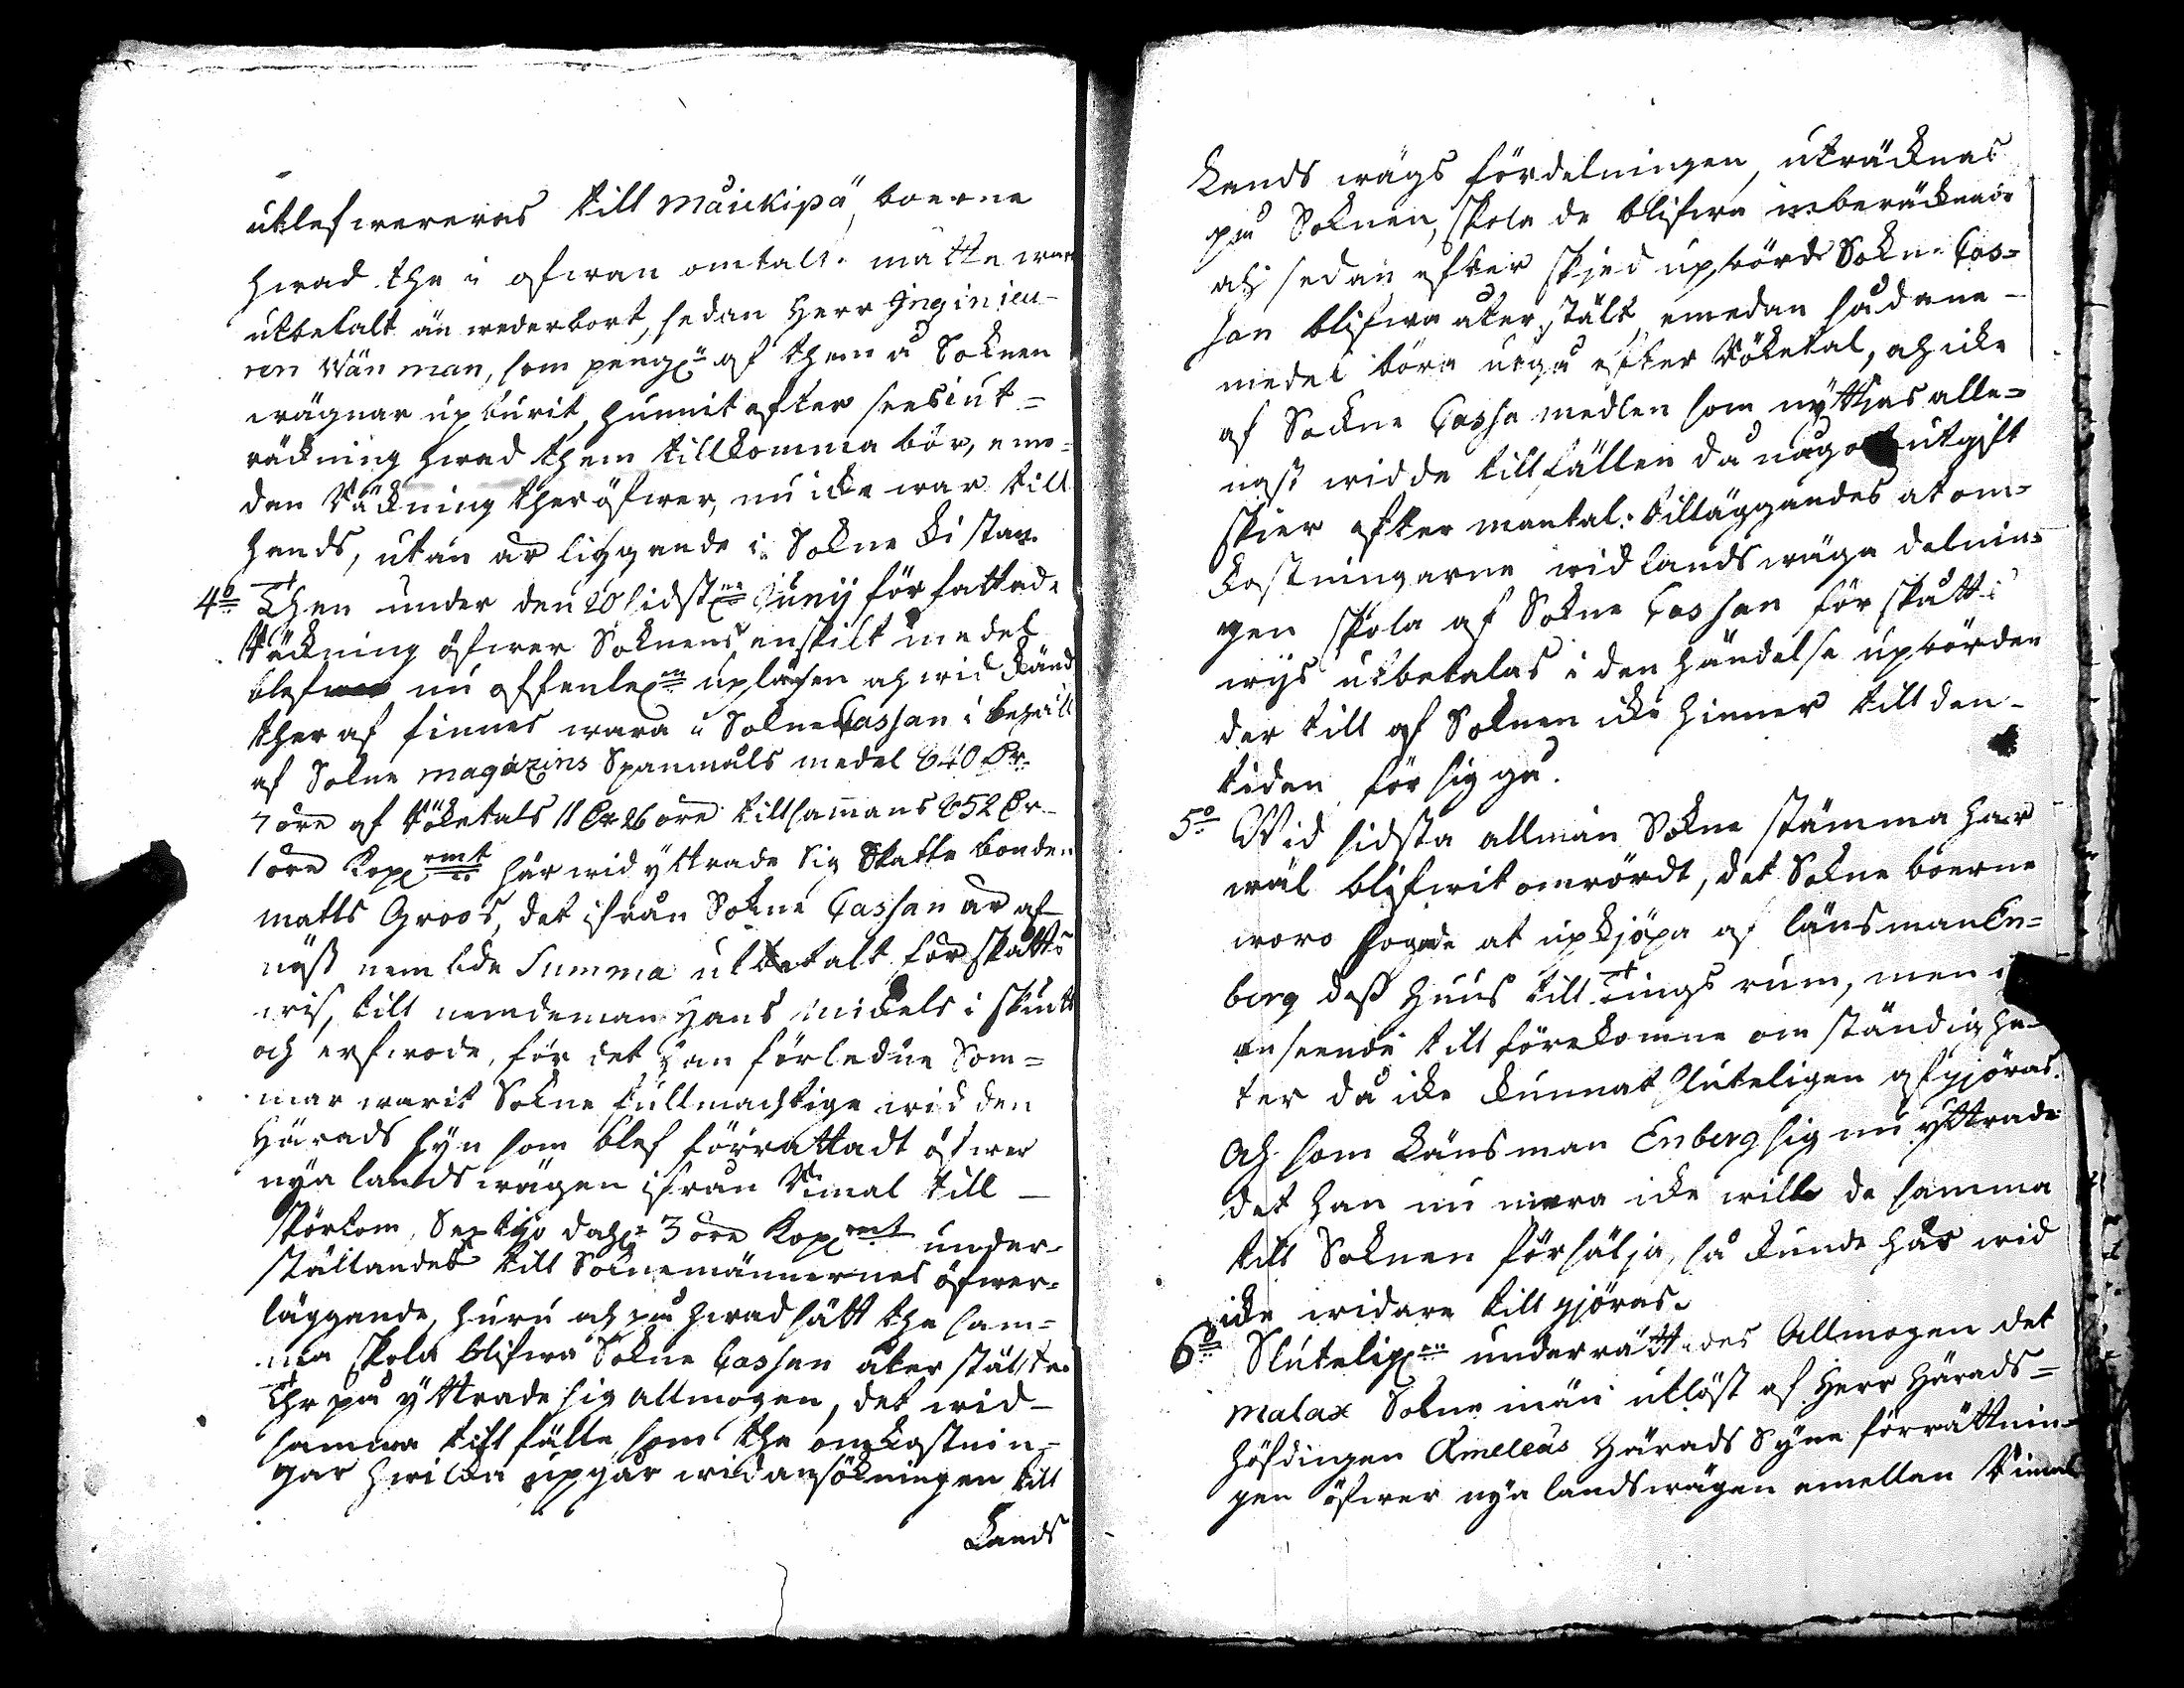 utlefwereras till Måikipä, boerne
hwad the i ofwan omtalt måtte war
utbetalt än wederbort, sedan Herr Inginieu-
ren Wänman, som peng:n af them å Soknen
wägnar upburit, hunnit efter see sin ut=
räkning hwad them tillkomma bör, eme=
dan Räkning ther öfwer, nu icke war till
hands, utan är liggande i Sokne kistan.
4o Then under den 20 sidst:ne Junij författade
Räkning öfwer Soknens enskilt medel
blef nu offentel:n upläsen och widkänd
ther af finnes wara i Sokne Cassan i behåll
af Sokne magazins Spanmåls medel 640 Dr
7 öre af Röketals 11 Dr 26 öre tillsammans 652 Dr
1 öre Kopp:rmt här wid yttrade sig Skatte bonden
matts Groos, det ifrån Sokne Cassan är af
näst nembde Summa utbetalt förskotts
wis, till nemdeman Hans Mickels i
och erfwode, för det han förledne Som=
mar warit Sokne fullmachtige wid den
Härads syn som blef förrättadt öfwer
nya landswägen ifrån Rimal till
Pörtom, Sextijo dal:r 3 öre Kopp:rmt under-
ställandes till Soknemännernes öfwer=
läggande, huru och på hwad sätt the sam=
ma skola blifwa Sokne Cassan återstälte.
Ther på yttrade sig allmogen, det wid
samma tillfälle som the omkostnin=
gar hwilka upgår wid ansökningen till
Lands
Lands wägs fördelningen, uträknas
på Soknen, skola de blifwa inberäknade
och sedan efter skjed upbörd Sokne Cas=
san blifwa återstält, emedan sådane
medel böra utgå efter Röketal, och icke
af Sockne Cassa medlen som nyttjas alle=
nast wid de tillfällen då någon utgift
skier efter mantal: tilläggandes at om=
kostningarne wid landswäga delnin=
gen skola af Sokne Cassan förskotts
wijs utbetalas i den händelse upbörden
der till af Soknen icke hinner till den
tiden för sig gå.
5o Wid sidsta allmän Sokne stämma har
wäl blifwit omrördt, det Sokne boerne
woro hogade at upkjöpa af länsman En=
berg dess huus till Tings rum, men i
anseende till förekomne omständighe
ter då icke kunnat sluteligen afgjöras.
Och som Länsman Enberg sig nu yttrade
det han nu mera icke wille de samma
till Soknen försälja, så kunde här wid
icke widare till gjöras.
6o Slutelig:n underrättades Allmogen det
Malax Sokne män utlöst af Herr Härads=
höfdingen Ameleus Härads Syne förrättnin=
gen öfwer nya landswägen emellan Rimal